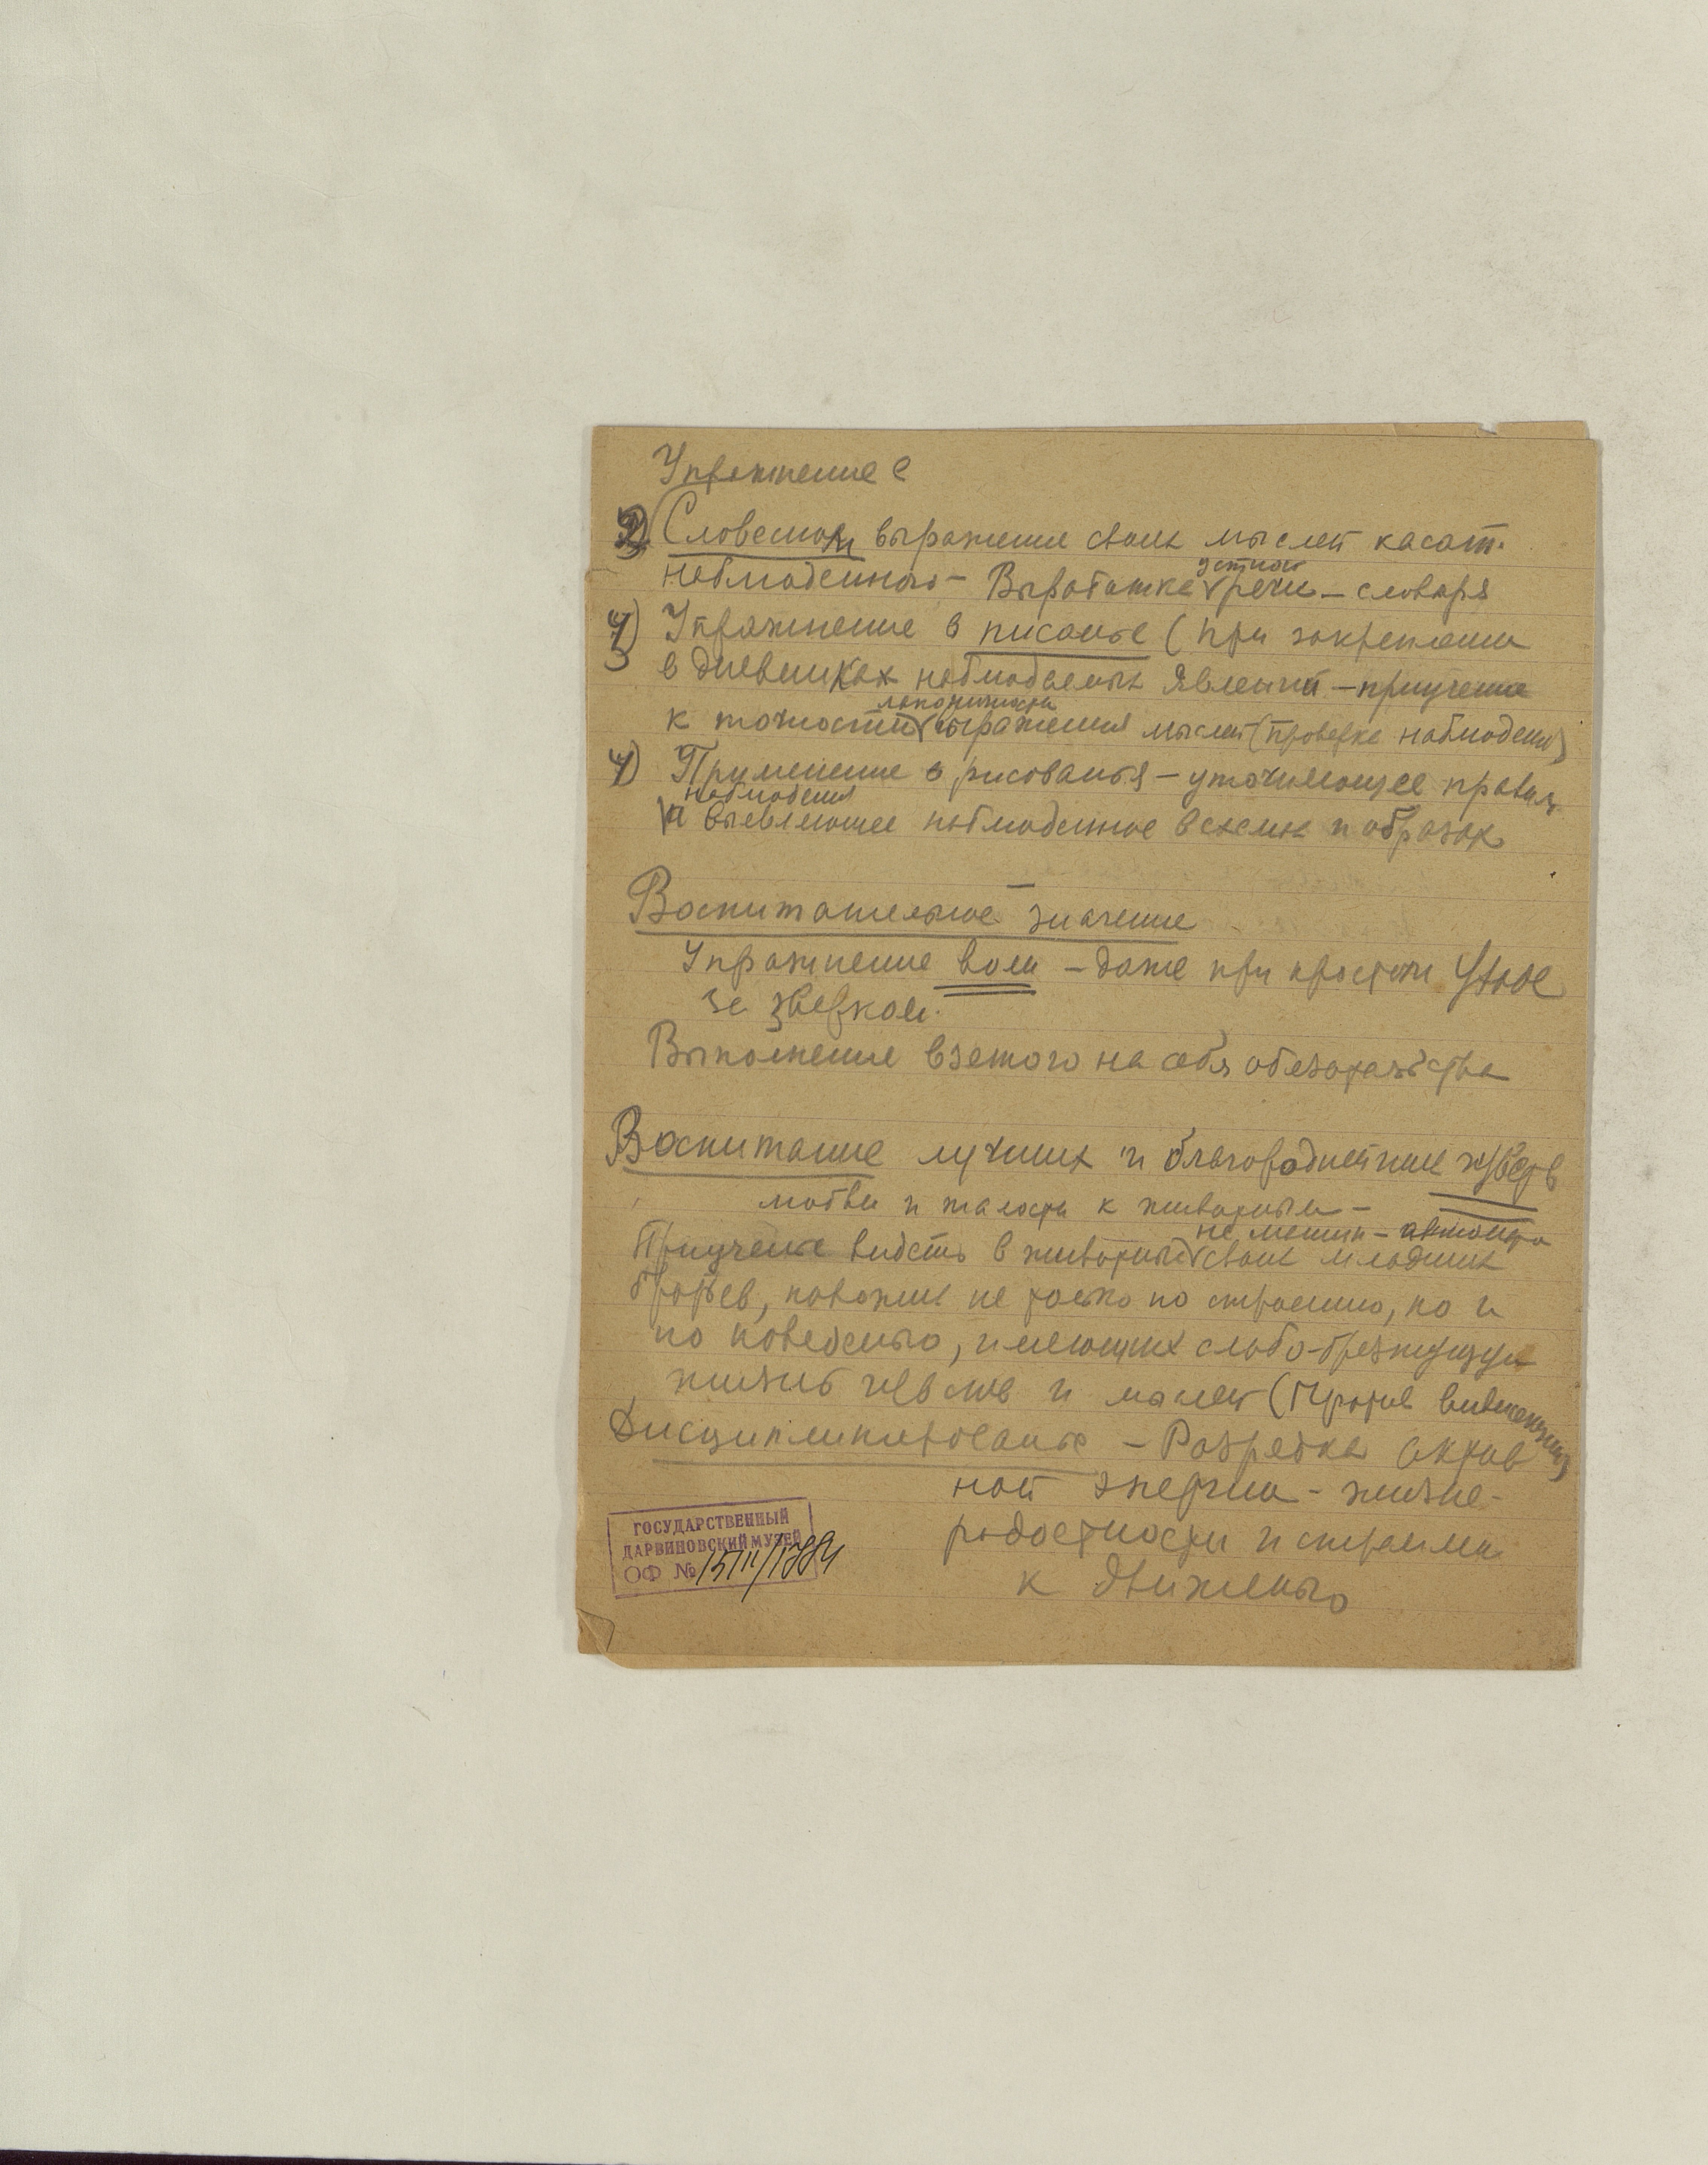 Упражнение в
2) Словесном выражение своих мыслей касат.
наблюденного – Выработке устной речи – словаря
3) Упражнение в писанье (при закреплении
в дневниках наблюдаемых явлений – приучение
к точности лаконичности выражения мыслей (проверке наблюдений)
4) Применение в рисованья – уточняющее правил.
наблюдения
и выявляющее наблюденное в схемах и образах
Воспитательное значение
Упражнение воли – даже при простом уходе
за зверком.
Выполнение взятого на себя обязательства
Воспитание лучших и благороднейших чувств
любви и жалости к животным –
не машин – автомата
Приученье видеть в животных своих младших
братьев, похожих не только по строению, но и
по поведению, имеющих слабо-брезжущую
жизнь чувств и мыслей (Против вивисекции)
Дисциплинированье – Разрядка актив
ной энергии – жизне-
радостности и стремлен.
к движенью
ГОСУДАРСТВЕННЫЙ
ДАРВИНОВСКИЙ МУЗЕЙ
ОФ №